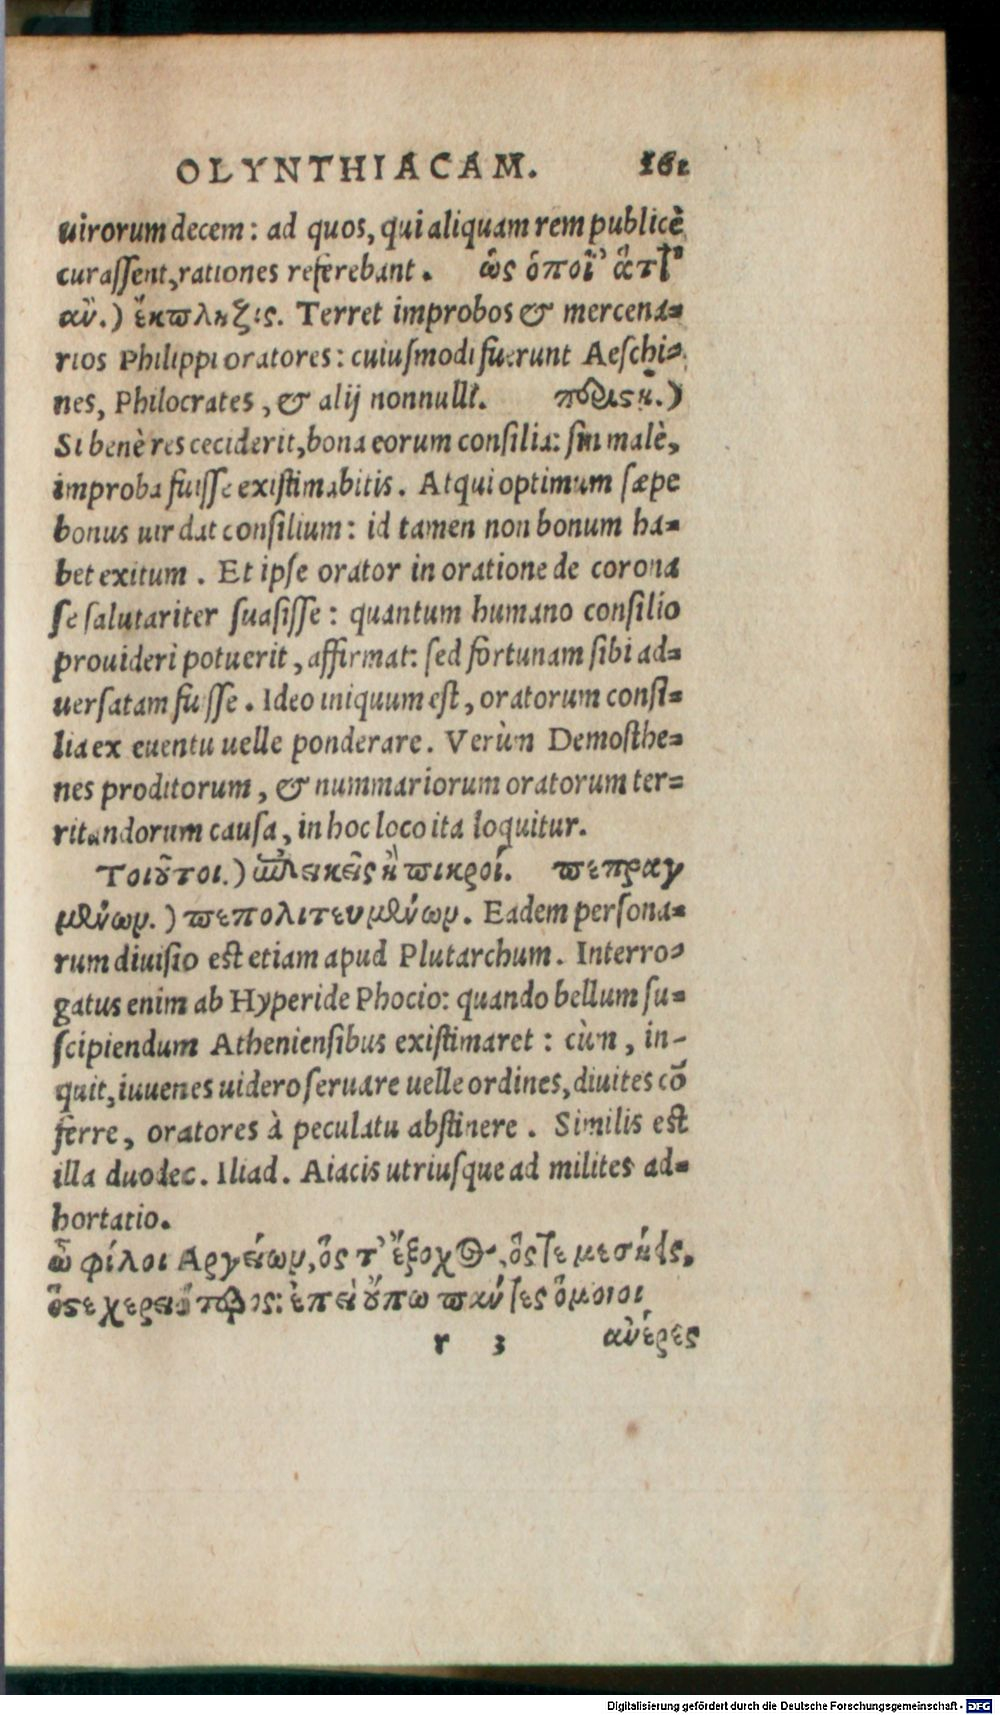 OLYNTHIACAM. 161
uirorum decem: ad quos, qui aliquam rem publicè
curassent, rationes referebant. ὡς ὁποῖ' ἄττ'
ἂν.) ἔκπληξις. Terret improbos & mercena=
rios Philippi oratores: cuiusmodi fuerunt Aeschi=
nes, Philocrates, & alij nonnulli. περιστῇ.)
Si benè res ceciderit, bona eorum consilia: sin malè,
improba fuisse existimabitis. Atqui optimum sæpe
bonus uir dat consilium: id tamen non bonum ha=
bet exitum. Et ipse orator in oratione de corona
se salutariter suasisse: quantum humano consilio
prouideri potuerit, affirmat: sed fortunam sibi ad=
uersatam fuisse. Ideo iniquum est, oratorum consi=
lia ex euentu uelle ponderare. Verùm Demosthe=
nes proditorum, & nummariorum oratorum ter=
ritandorum causa, in hoc loco ita loquitur.
Τοιοῦτοι.) ἐπιεικεῖς ἢ πικροί. πεπραγ
μένων.) πεπολιτευμένων. Eadem persona=
rum diuisio est etiam apud Plutarchum. Interro=
gatus enim ab Hyperide Phocio: quando bellum su=
scipiendum Atheniensibus existimaret: cùm, in-
quit, iuuenes uidero seruare uelle ordines, diuites cō
ferre, oratores à peculatu abstinere. Similis est
illa duodec. Iliad. Aiacis utriusque ad milites ad=
hortatio.
ὦ φίλοι Ἀργείων, ὅς τ' ἔξοχος, ὅς τε μεσήεις,
ὅς τε χερειότερος: ἐπεὶ οὔπω πάντες ὅμοιοι
r 3 ἀνέρες
Digitalisierung gefördert durch die Deutsche Forschungsgemeinschaft - DFG